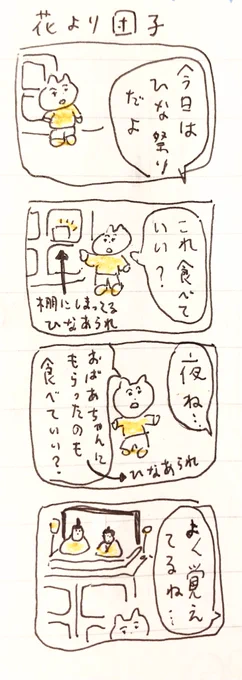 花より団子
今日は
ひな祭り
だよ
これ食べて
いい?
棚にしまってる
ひなあられ
夜ね…
おばあちゃんに
もらったのも
食べていい?
ひなあられ
よく覚え
てるね…